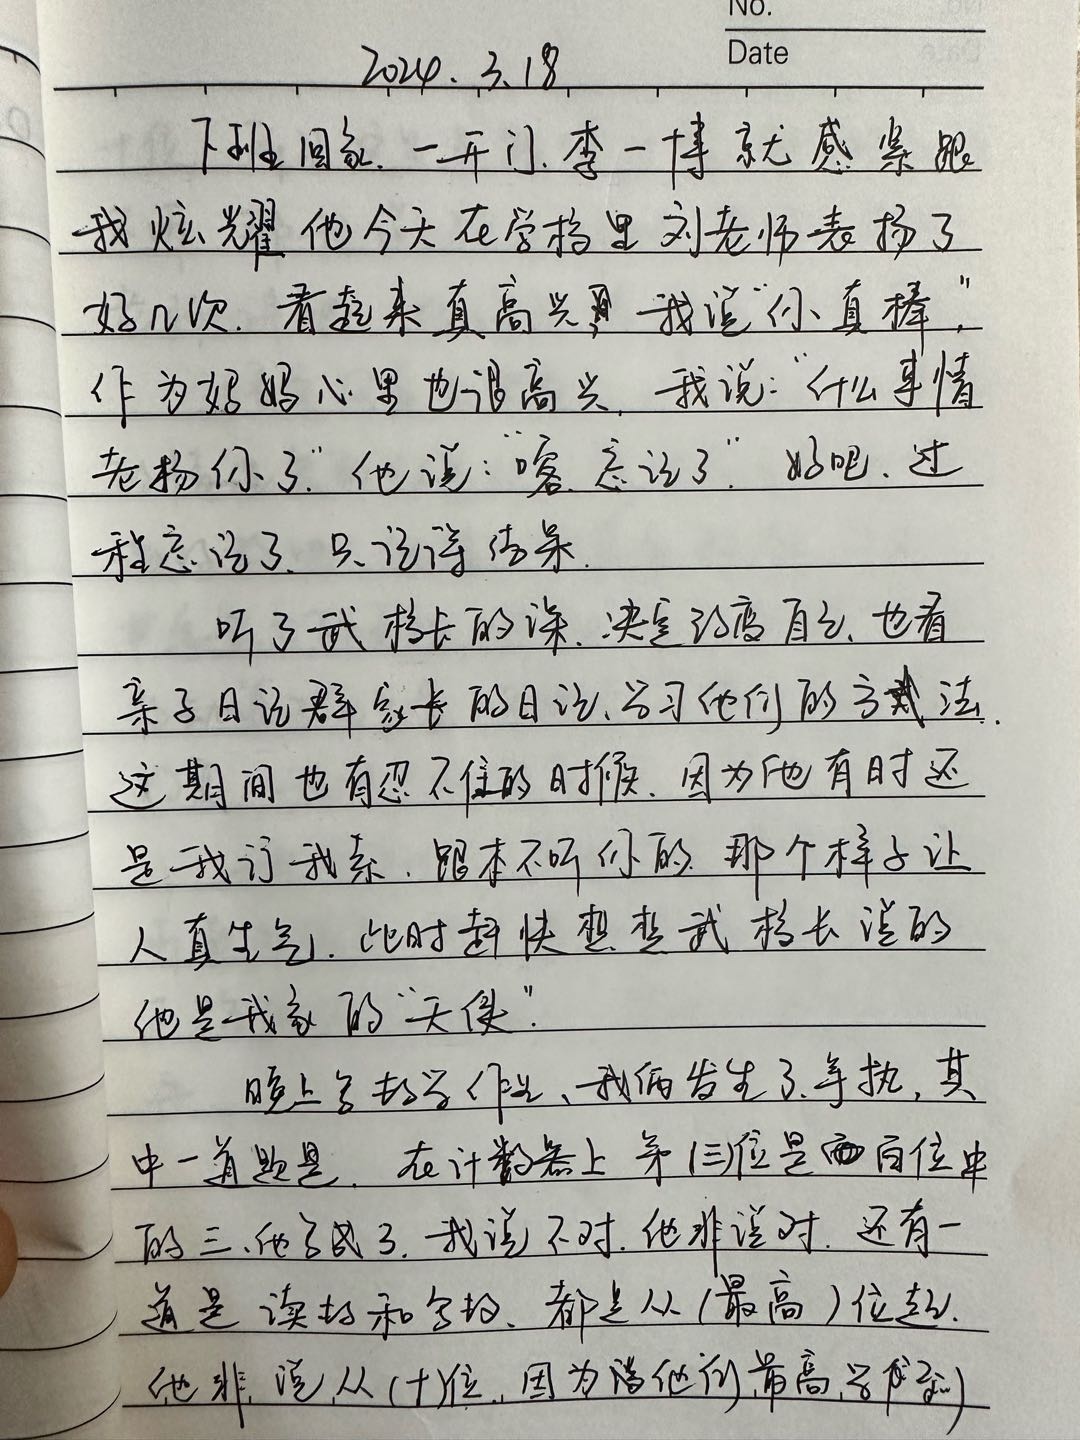 No.
Date
2024.3.18
下班回家,一开门,李一博就感亲跟
我炫耀他今天在学校里刘老师表扬了
好几次.看起来真高兴,我说"你真棒",
作为妈妈心里也很高兴,我说:"什么事情
老扬你了."他说:"嗯,忘记了."好吧,过
程忘记了,只记得结果.
听了武校长的课,决定改变自己,也看
亲子日记群家长的日记,学习他们的方法.
这期间也有忍不住的时候,因为他有时还
是我行我素,跟本不听你的,那个样子让
人真生气,此时赶快想想武校长说的
他是我家的"天使".
晚上写数学作业,我俩发生了争执,其
中一道题是,在计数器上第(三)位是百位中
的三,他写成了,我说不对,他非说对,还有一
道是读数和写数,都是从(最高)位起,
他非说从(十)位,因为他们最高